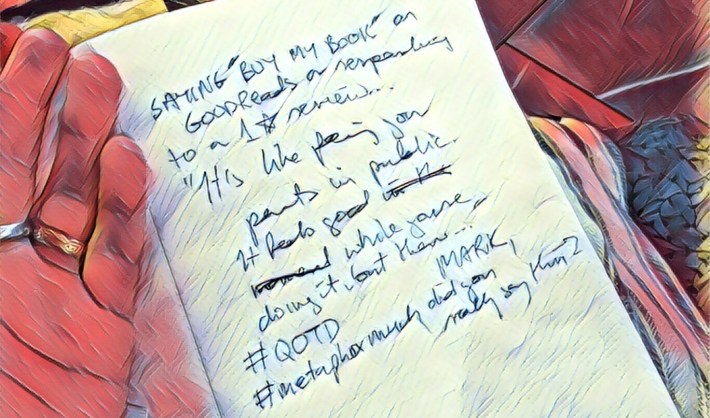 SAYING "BUY MY BOOK" on
GOODREADS or responding
to a 1* review...
"It is like peeing your
pants in public.
It feels good in
while you're
doing it but then...
MARK,
#QOTD
#metaphor much did you
really say this?